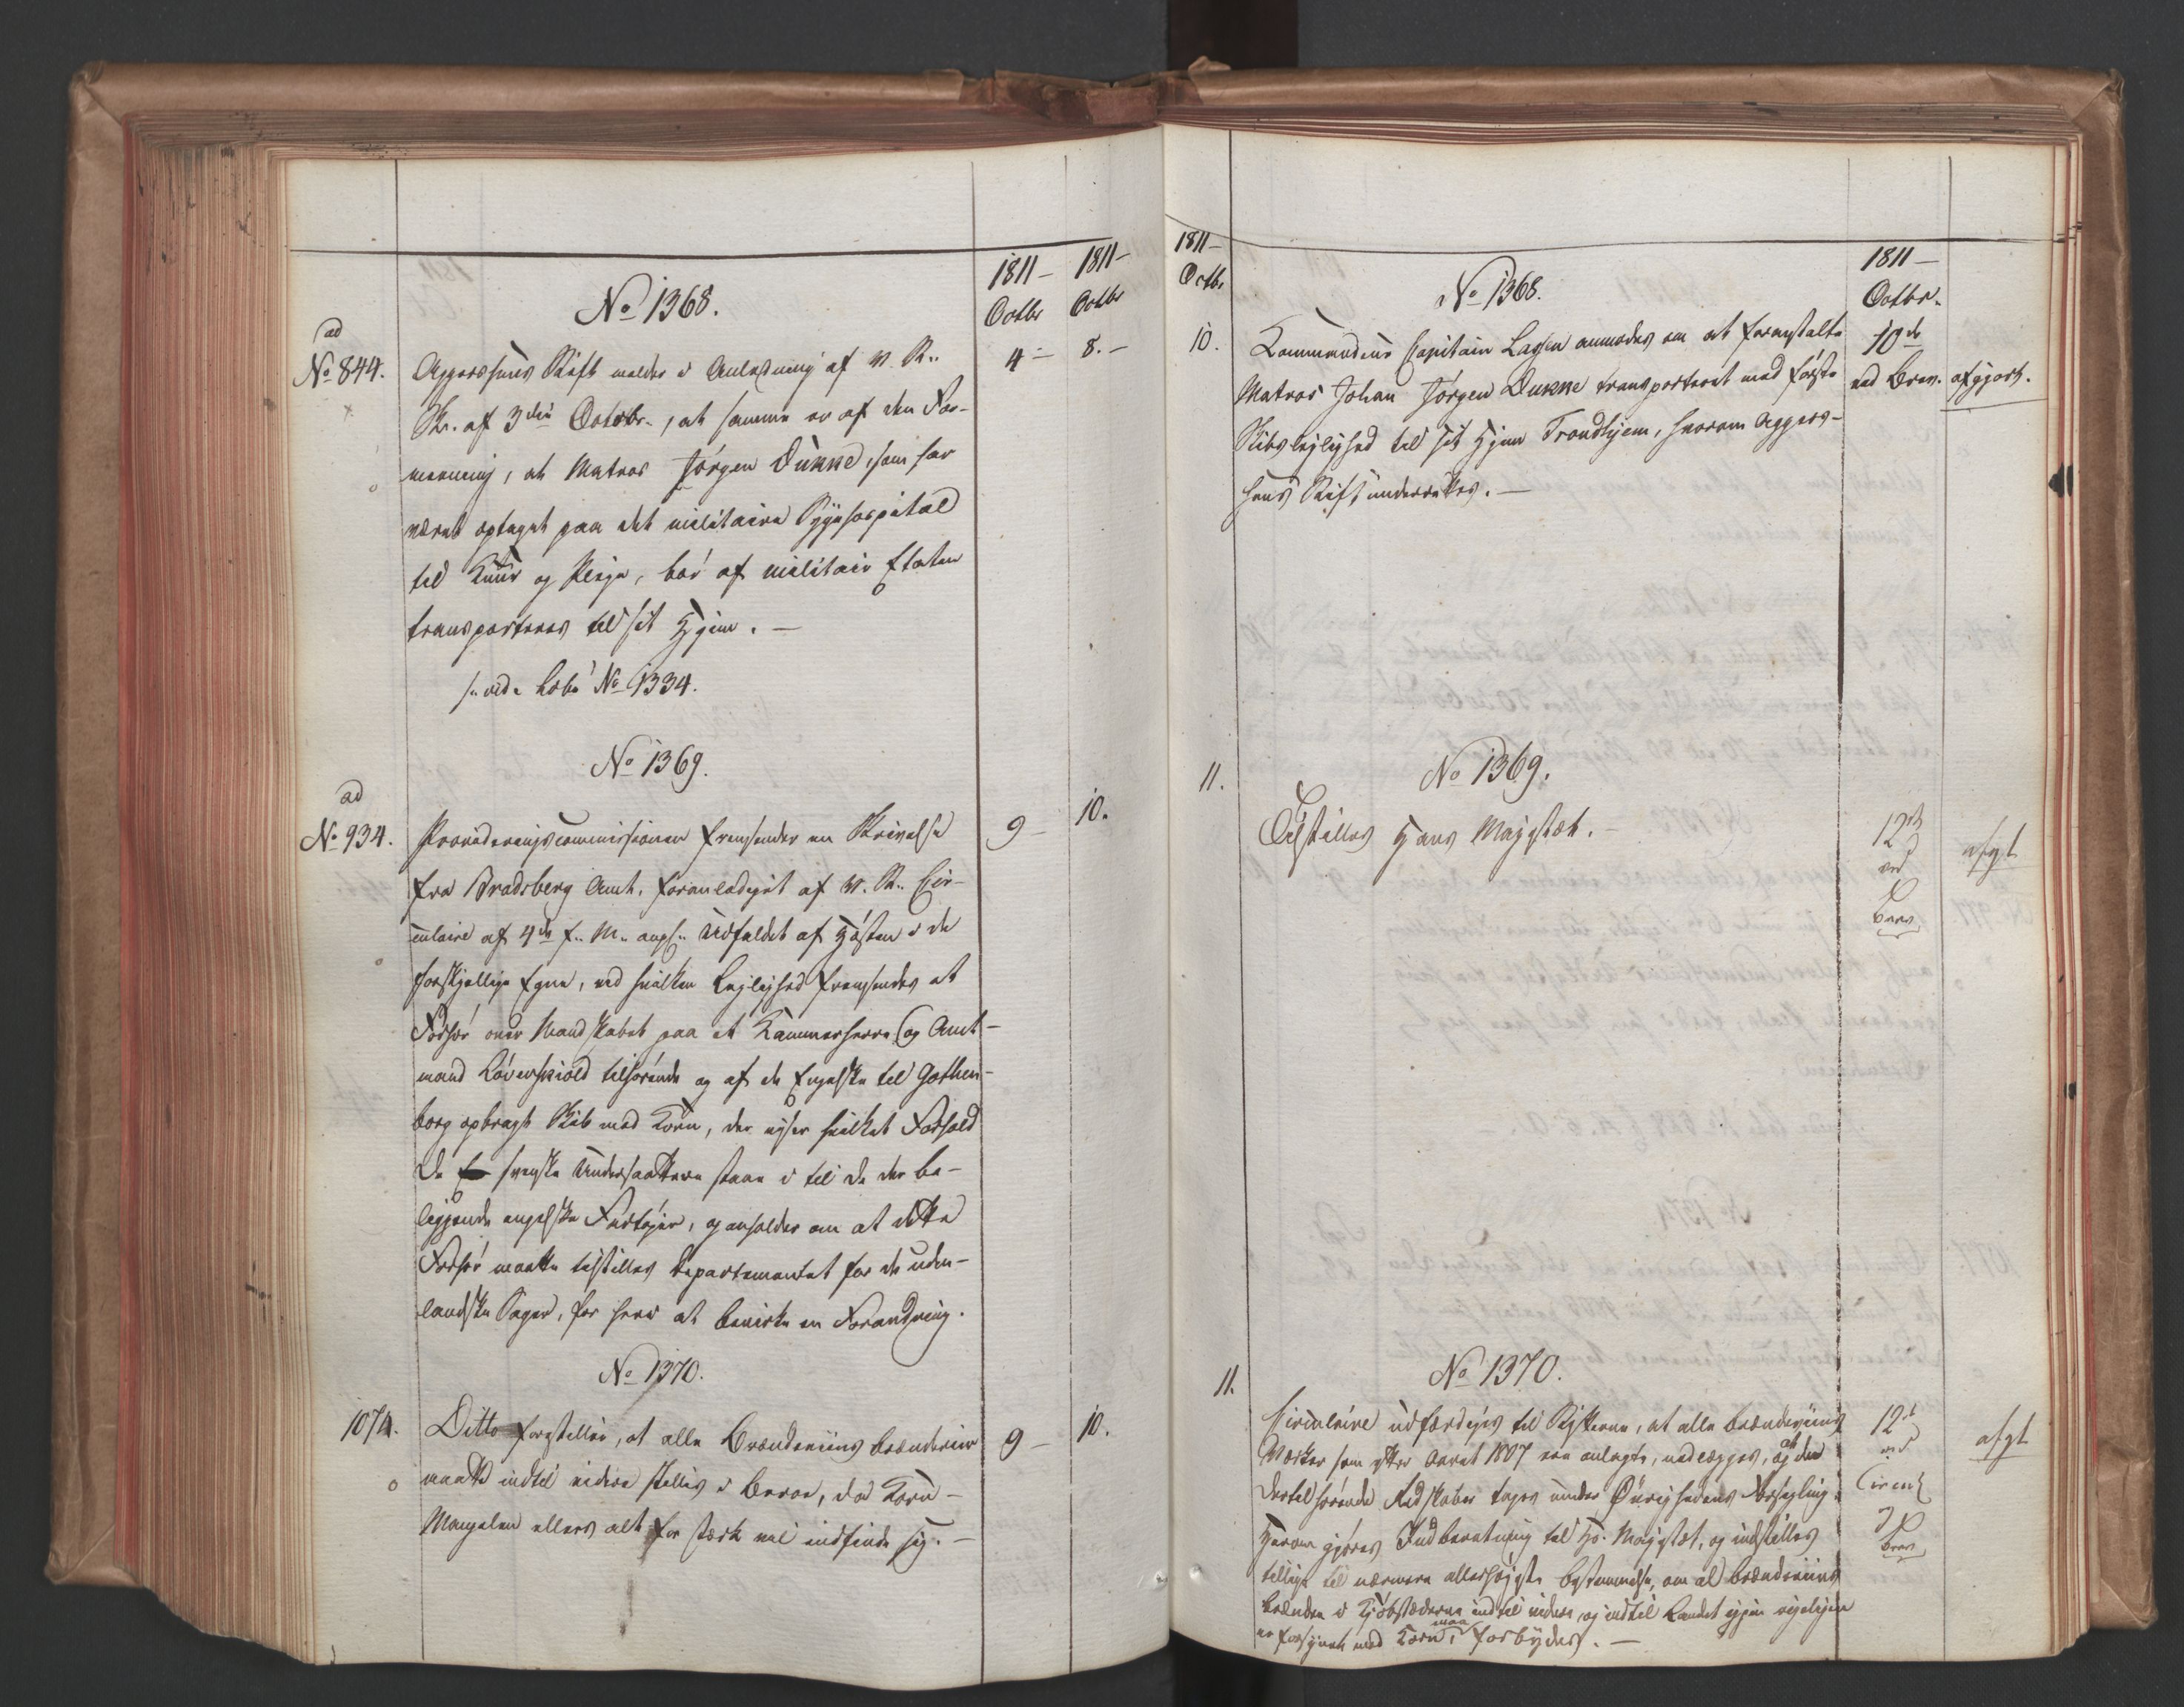 1811 –
Octbr
1811 –
Octbr
No 1368.
ad
No 844.
Aggershuus Stift melder i Anledning af V. R.
Skr. af 3die Octobr., at samme er af den For-
meening, at Matros Jørgen Dunne, som har
været optaget paa det militaire Sygehospital
til Kuur og Pleje, bør af militair Etaten
transporteres til sit Hjem. –
4 –
8. –
s. vide Lobe No 1334.
No 1369.
ad
No 934.
Provideringscommissionen fremsender en Skrivelse
fra Bradsberg Amt, foranlediget af V. R. Cir-
culaire af 4de f. M. ang. Udfaldet af Høsten i de
forskjellige Egne, ved hvilken Lejlighed fremsendes et
Forhør over Mandskabet paa et Kammerherre og Amt-
mand Løvenskiold tilhørende og af de Engelske til Gothen-
borg opbragt Skib med Korn, der viser hvilket Forhold
De svenske Undersaatter staae i til de der be-
liggende engelske Fartøjer, og anholder om at dette
Forhør maatte tilstilles Departementet for de uden-
landske Sager, for herved at bevirke en Forandring.
9 –
10.
No 1370.
1074.
Ditto forestiller, at alle Brændeviins Brænderier
maatte indtil videre stilles i Beroe, da Korn-
Mangelen ellers alt for stærk vil indfinde sig. –
9 –
10.
1811 –
Octbr
1811 –
Octbr.
No 1368.
10.
Commandeur Capitain Lagen anmodes om at foranstalte
Matros Johan Jørgen Dunne transporteret med første
Skibslejlighed til sit Hjem Trondhjem, hvorom Aggers-
huus Stift underrettes. –
10de
ved Brev.
afgjort.
No 1369.
11.
Tilstilles Hans Majestæt. –
12te
ved
Brev
afgt
No 1370.
11.
Circulaire udfærdiges til Stifterne, at alle brændeviins
Værker som efter Aaret 1807 ere anlagte, nedlægges, og at de
dertil hørende Redskaber tages under Øvrighedens Forsegling
Herom gjøres Indberetning til Hs. Majestæt, og indstilles
tillige til nærmere allerhøjeste Bestemmelse, om al brændeviins
brænden i Kjøbstæderne indtil videre, og indtil Landet igjen rigeligen
er forsynet med Korn, maa forbydes. –
12te
ved
Circul
og
Brev
afgt